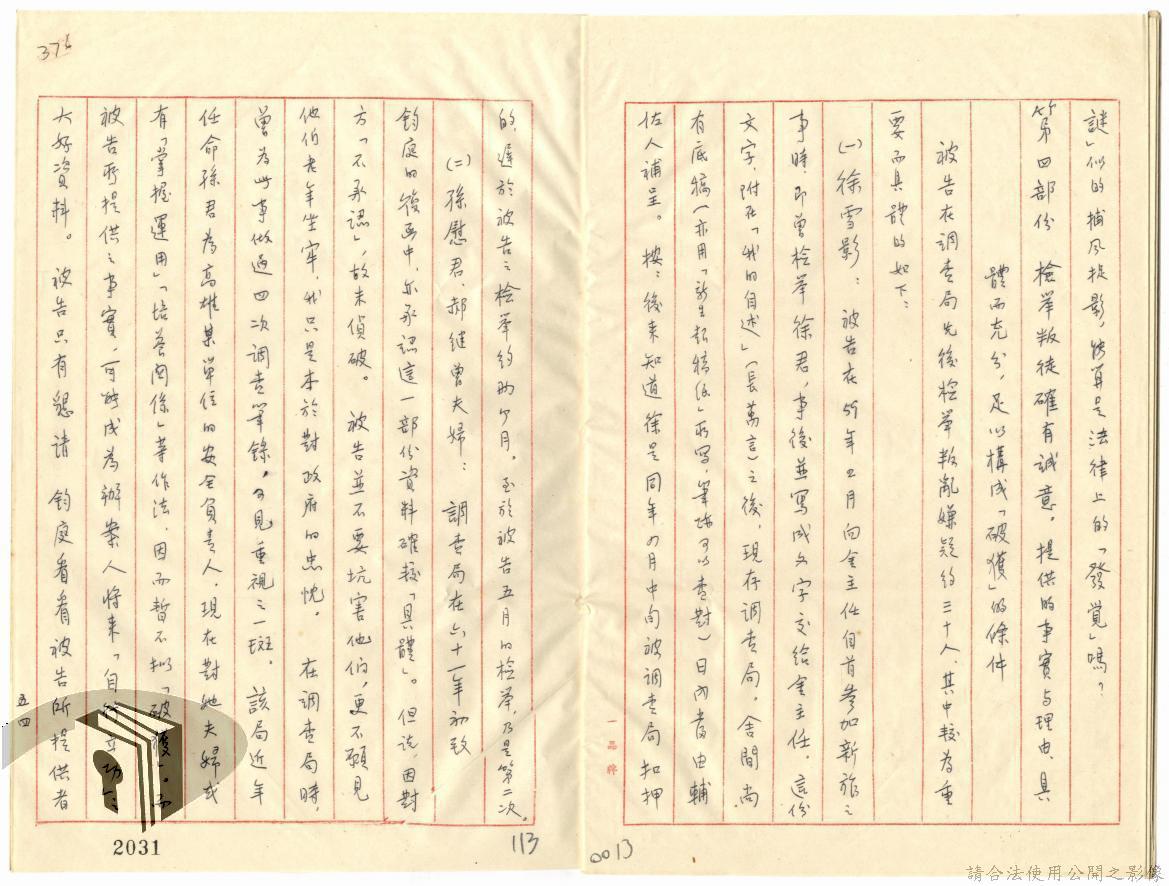 謎」似的捕風捉影，能算是法律上的「發覺」嗎？
第四部份　檢舉叛徒確有誠意。提供的事實与理由，具
體而充分，足以構成「破獲」的條件
被告在調查局先後檢舉叛亂嫌疑約三十人，其中較為重
要而具體的如下：
(一)徐雪影：被告在59年2月向金主任自首參加新旅之
事時，即曾檢舉徐君，事後並寫成文字交給金主任。這份
文字，附在「我的自述」（長萬言）之後，現存調查局。舍間尚
有底稿（亦用「新生報稿紙」所寫，筆跡可以查對）日內當由輔
佐人補呈。按：後來知道徐是同年4月中旬被調查局扣押
的，遲於被告之檢舉約兩个月。至於被告五月的檢舉，乃是第二次。
(二)孫慰君、郝繼曾夫婦：調查局在六十一年初致
鈞庭的復函中，亦承認這一部份資料確較「具體」。但說，因對
方「不承認」，故未偵破。被告並不要坑害他們，更不願見
他們老年坐牢，我只是本於對政府的忠忱。在調查局時，
曾為此事做過四次調查筆錄，可見重視之一斑。該局近年
任命孫君為高雄某單位的安全負責人，現在對她夫婦或
有「掌握運用」「培養關係」等作法，因而暫不擬「破獲」。而
被告所提供之事實，可能成為辦案人將來「自
大好資料。被告只有懇請　鈞庭看看被告所提供者
五四
376
2031
113
0013
一品牌
請合法使用公開之影像